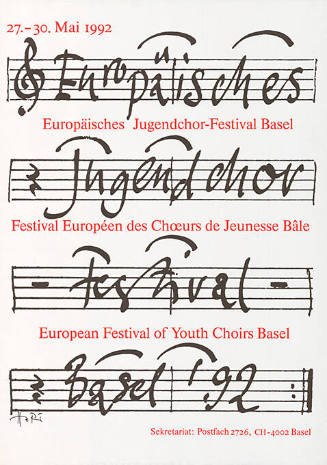 27.–30. Mai 1992
Europäisches
Europäisches Jugendchor-Festival Basel
Jugendchor
Festival Européen des Chœurs de Jeunesse Bâle
Festival
European Festival of Youth Choirs Basel
Basel '92
Sekretariat: Postfach 2726, CH-4002 Basel